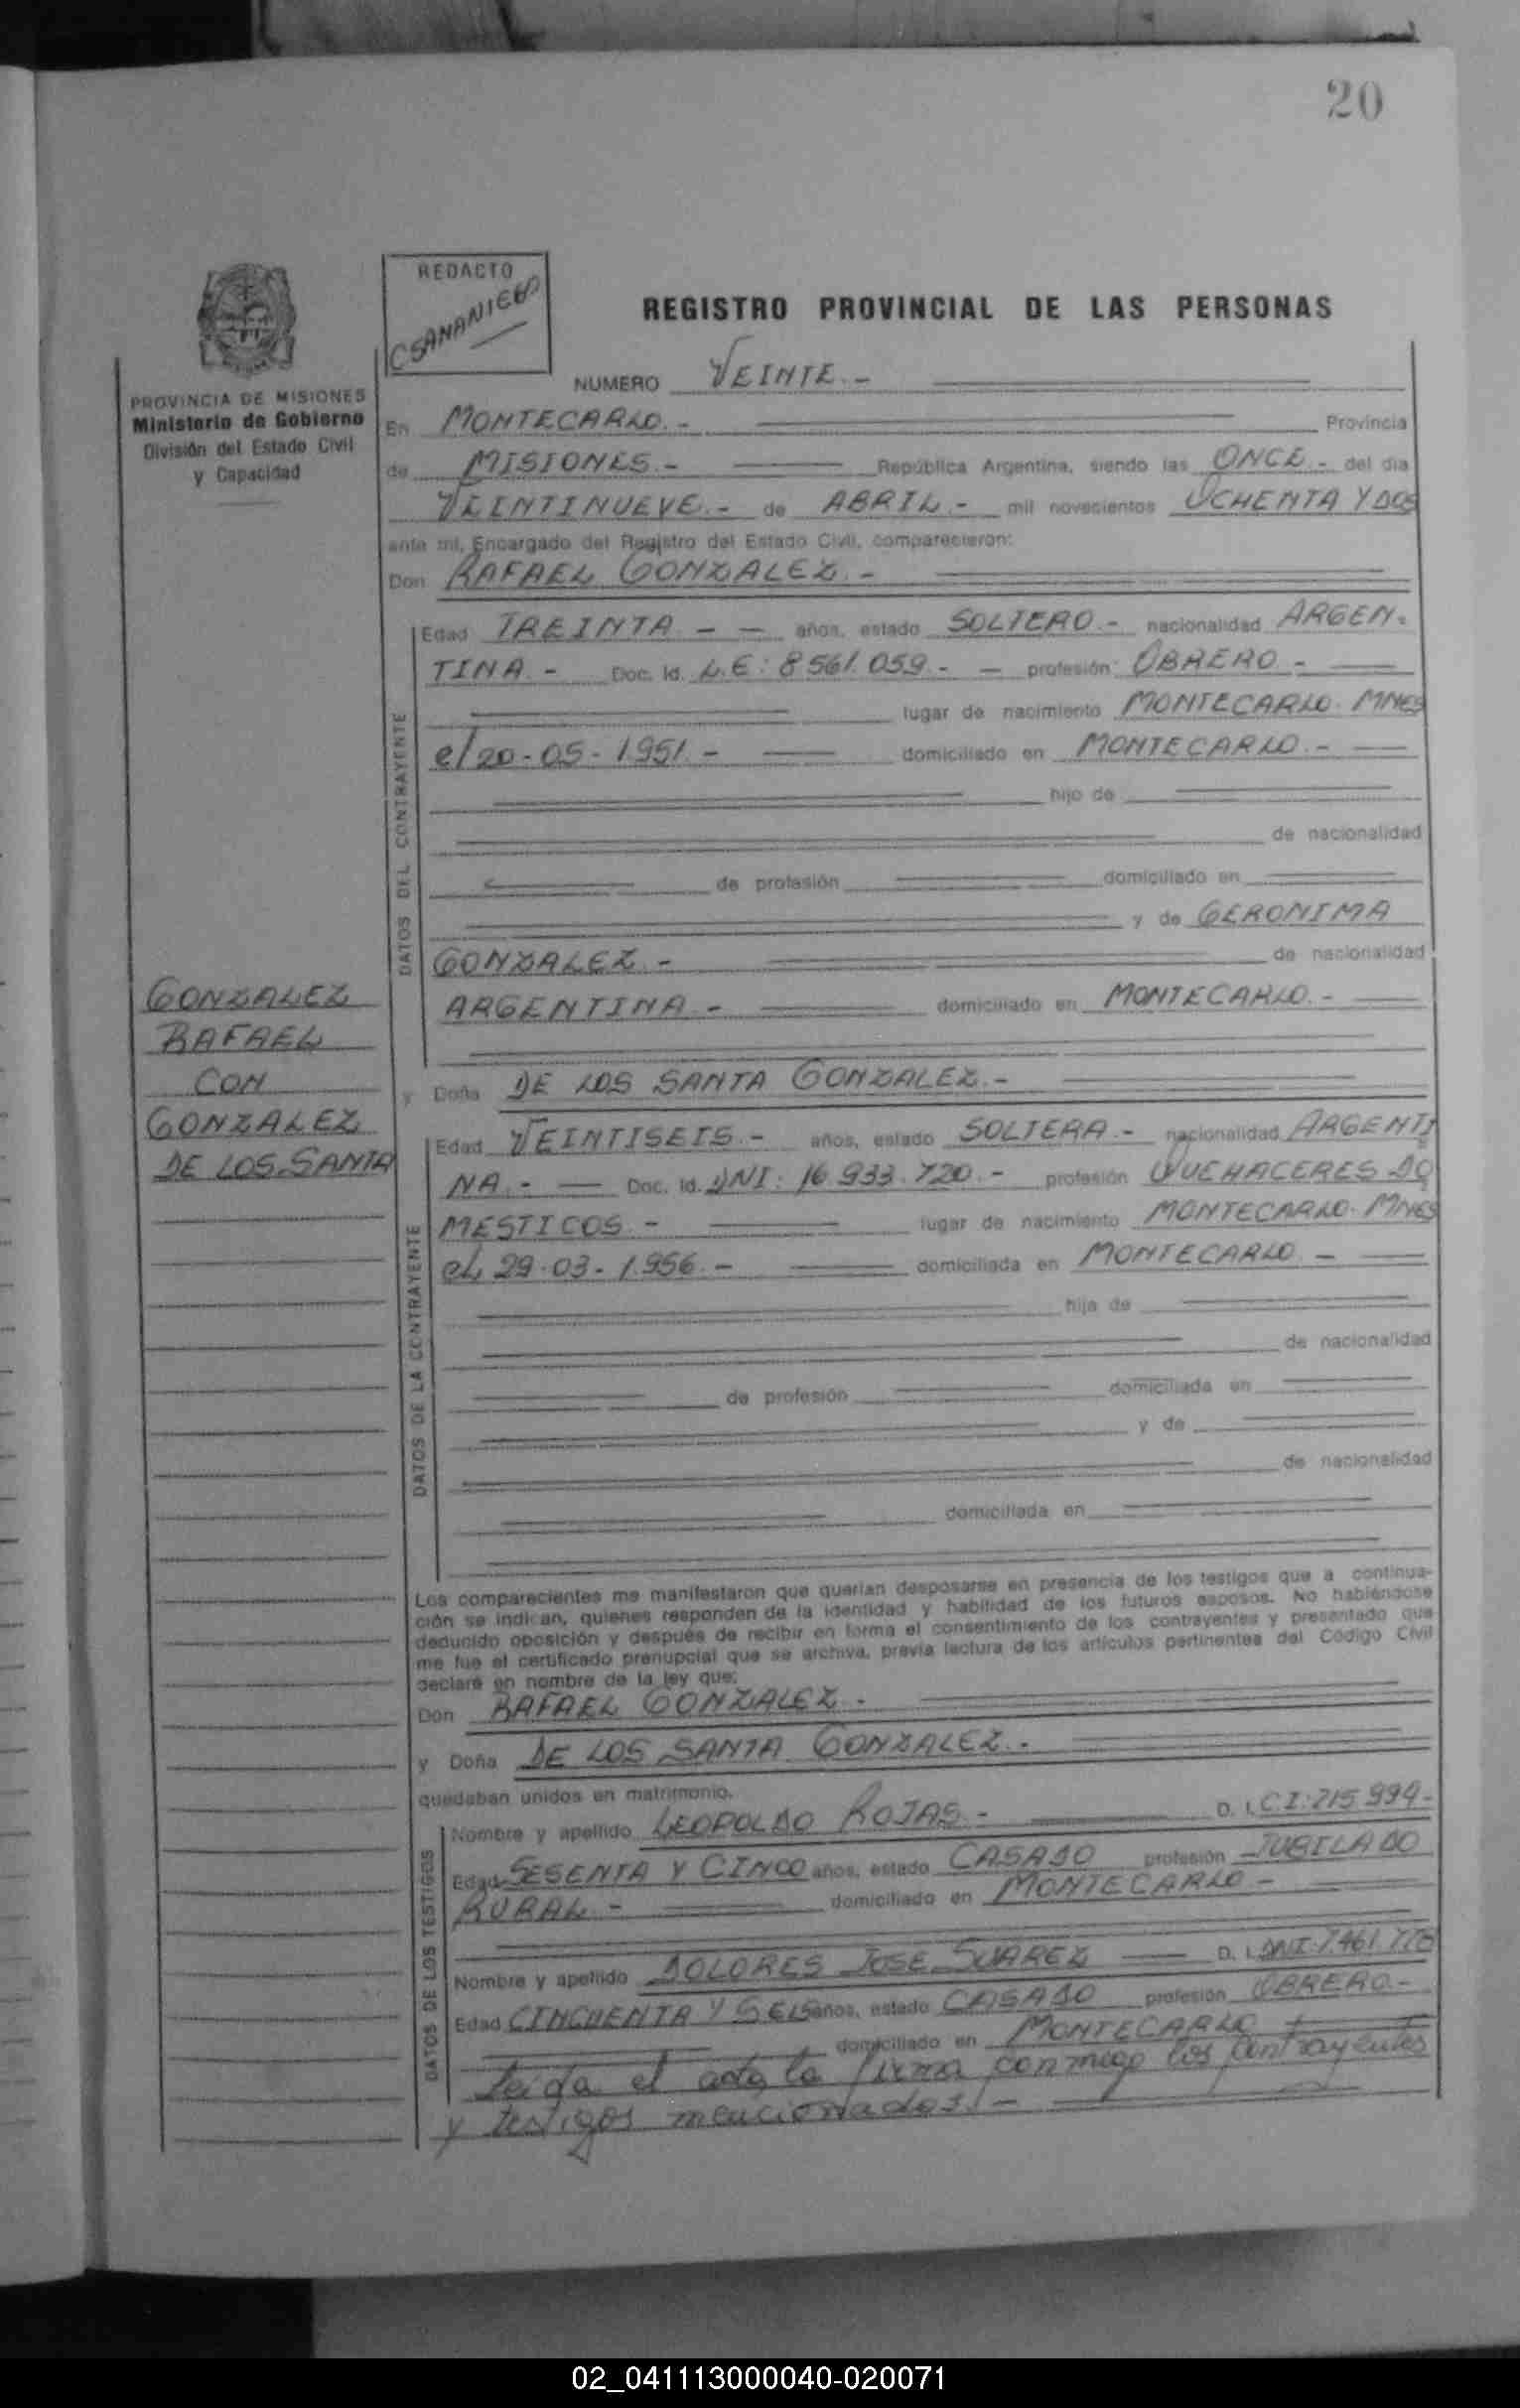 20
REDACTO
REGISTRO PROVINCIAL DE LAS PERSONAS
NUMERO VEINTE.-
PROVINCIA DE MISIONES
Ministerio de Gobierno
División del Estado Civil
y Capacidad
En MONTECARLO.- Provincia
de MISIONES.- República Argentina, siendo las ONCE.- del día
VEINTINUEVE.- de ABRIL.- mil novecientos OCHENTA Y DOS
ante mí, Encargado del Registro del Estado Civil, comparecieron:
Don RAFAEL GONZALEZ.-
DATOS DEL CONTRAYENTE
Edad TREINTA - - años, estado SOLTERO.- nacionalidad ARGEN-
TINA.- Doc. Id. L.E: 8561.059.- - profesión: OBRERO.-
lugar de nacimiento MONTECARLO. MNES
el 20-05-1951.- domiciliado en MONTECARLO.-
hijo de
de nacionalidad
de profesión domiciliado en
y de GERONIMA
GONZALEZ.- de nacionalidad
ARGENTINA.- domiciliado en MONTECARLO.-
GONZALEZ
RAFAEL
CON
GONZALEZ
DE LOS SANTA
y Doña DE LOS SANTA GONZALEZ.-
DATOS DE LA CONTRAYENTE
Edad VEINTISEIS.- años, estado SOLTERA.- nacionalidad ARGENTI
NA.- Doc. Id. DNI: 16.933.720.- profesión QUEHACERES DO
MESTICOS.- lugar de nacimiento MONTECARLO. MNES
el 29-03-1956.- domiciliada en MONTECARLO.-
hija de
de nacionalidad
de profesión domiciliada en
y de
de nacionalidad
domiciliada en
Los comparecientes me manifestaron que querían desposarse en presencia de los testigos que a continua-
ción se indican, quienes responden de la identidad y habilidad de los futuros esposos. No habiéndose
deducido oposición y después de recibir en forma el consentimiento de los contrayentes y presentado que
me fue el certificado prenupcial que se archiva, previa lectura de los artículos pertinentes del Código Civil
declaré en nombre de la ley que:
Don RAFAEL GONZALEZ.-
y Doña DE LOS SANTA GONZALEZ.-
quedaban unidos en matrimonio.
DATOS DE LOS TESTIGOS
Nombre y apellido LEOPOLDO ROJAS.- D. I. C I: 215.994-
Edad SESENTA Y CINCO años, estado CASADO profesión JUBILADO
RURAL.- domiciliado en MONTECARLO-
Nombre y apellido DOLORES JOSE SUAREZ D. I. DNI: 7.461.
Edad CINCUENTA Y SEIS años, estado CASADO profesión OBRERO.-
domiciliado en MONTECARLO
Leída el acta la firma conmigo los contrayentes
y testigos mencionados.-
02_041113000040-020071